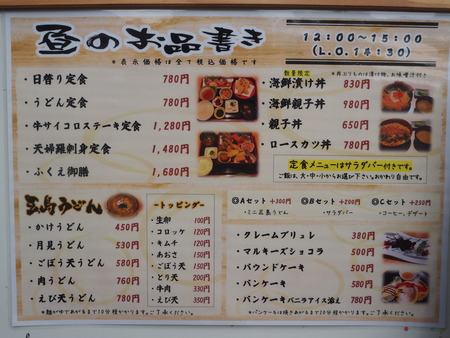 昼のお品書き
＊表示価格は全て税込価格です
12:00~15:00
(L.O.14:30)
・日替り定食 780円
・うどん定食 780円
・牛サイコロステーキ定食 1,280円
・天婦羅刺身定食 1,480円
・ふくえ御膳 1,680円
数量限定
＊丼ぶりものは漬け物、お味噌汁付き
・海鮮漬け丼 830円
・海鮮親子丼 980円
・親子丼 650円
・ロースカツ丼 780円
定食メニューはサラダバー付きです。
ご飯は、大・中・小からお選び下さい。おかわり自由です。
五島うどん
・かけうどん 450円
・月見うどん 530円
・ごぼう天うどん 580円
・肉うどん 760円
・えび天うどん 780円
＊麺がゆであがるまで10分程かかります。ご了承ください。
~トッピング~
・生卵 100円
・コロッケ 120円
・キムチ 120円
・あおさ 150円
・ごぼう天 150円
・とり天 200円
・牛肉 330円
・えび天 350円
◎Aセット +300円
・ミニ五島うどん
◎Bセット +200円
・サラダバー
◎Cセット +250円
・コーヒー、デザート
・クレームブリュレ 380円
・マルキーズショコラ 500円
・パウンドケーキ 500円
・パンケーキ 580円
・パンケーキバニラアイス添え 780円
＊パンケーキは焼きあがるまで10分程かかります。ご了承ください。